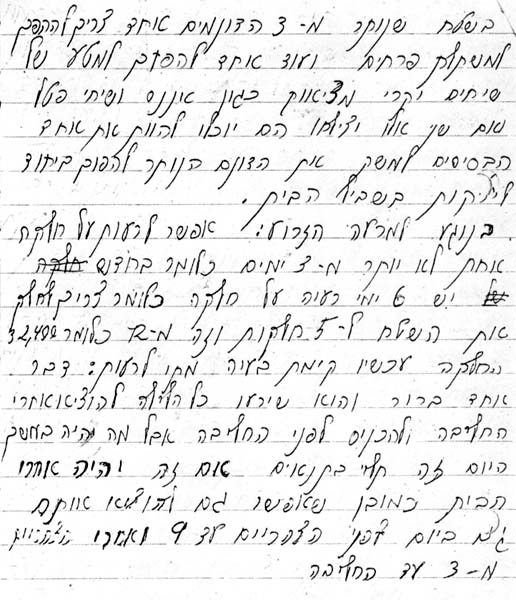 בשלח שנותר מ-3 הדונמים אחד צריך להפוך
למשתלת פרחים ועוד אחד להפוך למטע של
שיחים יקרי מציאות כגון אננס ושיחי פטל
ואם שני אלו יצליחו הם יוכלו להוות את אחד
הבסיסים למשק את הדונם הנותר להפוך ביחוד
לירקות בשביל הבית.
בנוגע למרעה הזרוע: אפשר לרעות על חלקה
אחת לא יותר מ-3 ימים כלומר בחודש
יש 6 ימי רעיה על חלקה כלומר צריך לחלק
את השלח ל-5 חלקות וזה מ-12 כלומר 2,400
החלקה עכשיו קימת בעיה מתי לרעות: דבר
אחד ברור והוא שירעו כל חליבה להוציא אחרי
החליבה ולהכניס לפני החליבה אבל מה יהיה במשך
היום זה תלוי בתנאים אם זה יהיה אחרי
הבית כמובן שאפשר גם להוציא אותם
גם ביום לפני הצהריים עד 9 ואחרי
מ-3 עד החליבה